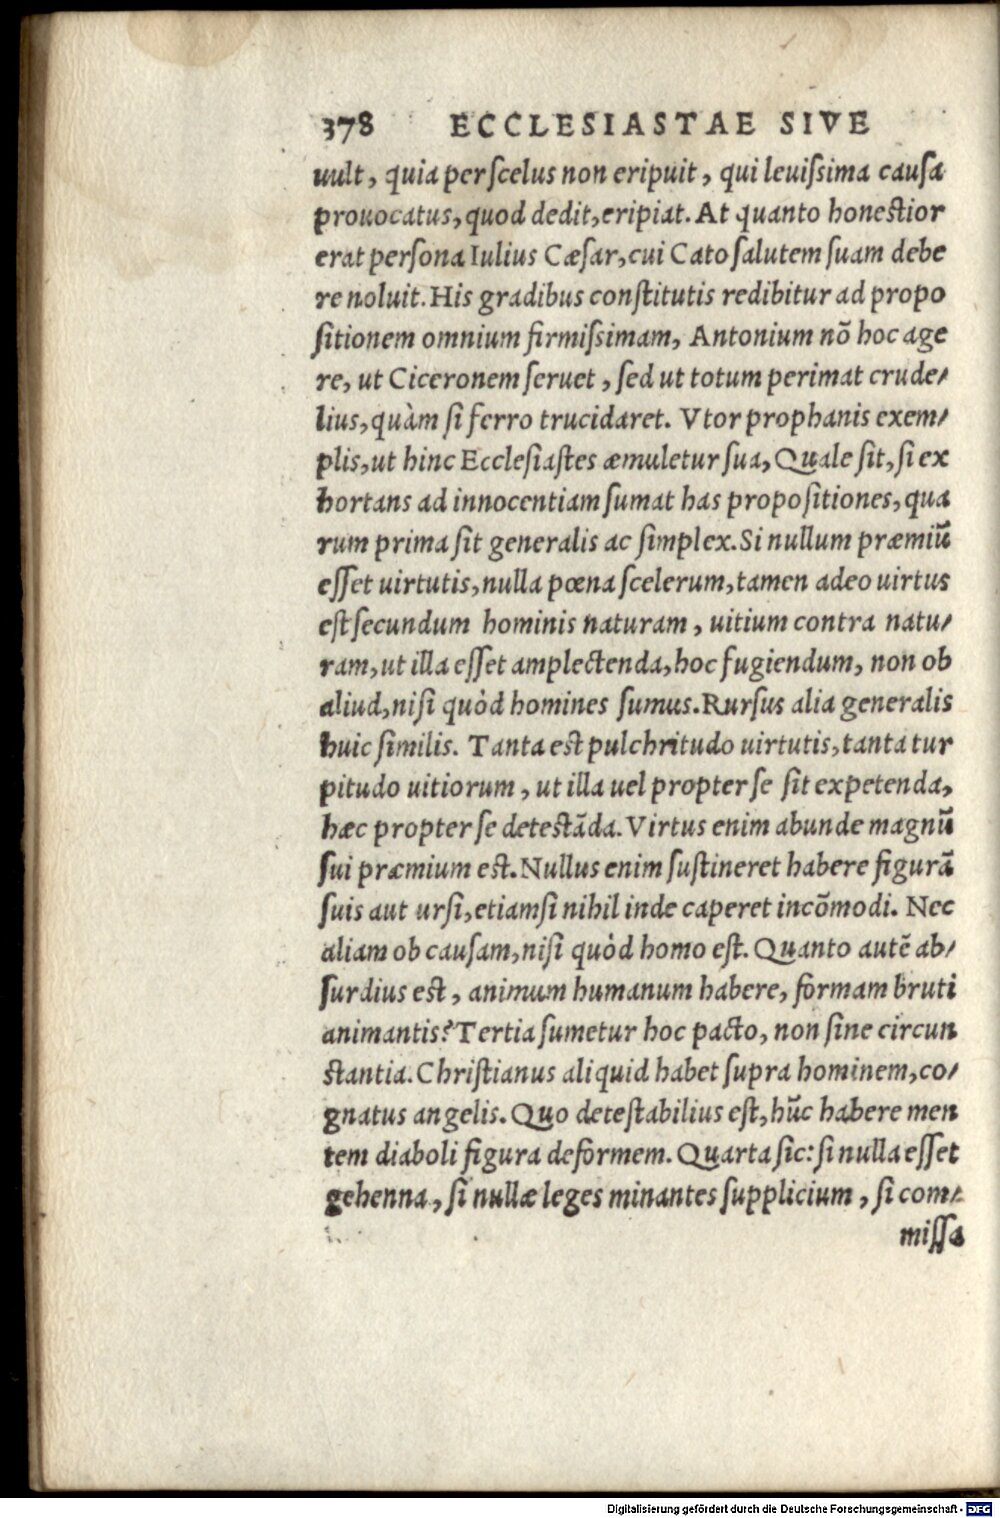 378 ECCLESIASTAE SIVE
uult, quia per ſcelus non eripuit, qui leuiſsima cauſa
prouocatus, quod dedit, eripiat. At quanto honeſtior
erat perſona Iulius Cæſar, cui Cato ſalutem ſuam debe
re noluit. His gradibus conſtitutis redibitur ad propo
ſitionem omnium firmiſsimam, Antonium nõ hoc age
re, ut Ciceronem ſeruet, ſed ut totum perimat crude/
lius, quàm ſi ferro trucidaret. Vtor prophanis exem/
plis, ut hinc Eccleſiaſtes æmuletur ſua, Quale ſit, ſi ex
hortans ad innocentiam ſumat has propoſitiones, qua
rum prima ſit generalis ac ſimplex. Si nullum præmiũ
eſſet uirtutis, nulla pœna ſcelerum, tamen adeo uirtus
eſt ſecundum hominis naturam, uitium contra natu/
ram, ut illa eſſet amplectenda, hoc fugiendum, non ob
aliud, niſi quòd homines ſumus. Rurſus alia generalis
huic ſimilis. Tanta eſt pulchritudo uirtutis, tanta tur
pitudo uitiorum, ut illa uel propter ſe ſit expetenda,
hæc propter ſe deteſtãda. Virtus enim abunde magnũ
ſui præmium eſt. Nullus enim ſuſtineret habere figurã
ſuis aut urſi, etiamſi nihil inde caperet incõmodi. Nec
aliam ob cauſam, niſi quòd homo eſt. Quanto autẽ ab/
ſurdius eſt, animum humanum habere, formam bruti
animantis? Tertia ſumetur hoc pacto, non ſine circun
ſtantia. Chriſtianus aliquid habet ſupra hominem, co/
gnatus angelis. Quo deteſtabilius eſt, hũc habere men
tem diaboli figura deformem. Quarta ſic: ſi nulla eſſet
gehenna, ſi nullæ leges minantes ſupplicium, ſi com/
miſſa
Digitalisierung gefördert durch die Deutsche Forschungsgemeinschaft - DFG